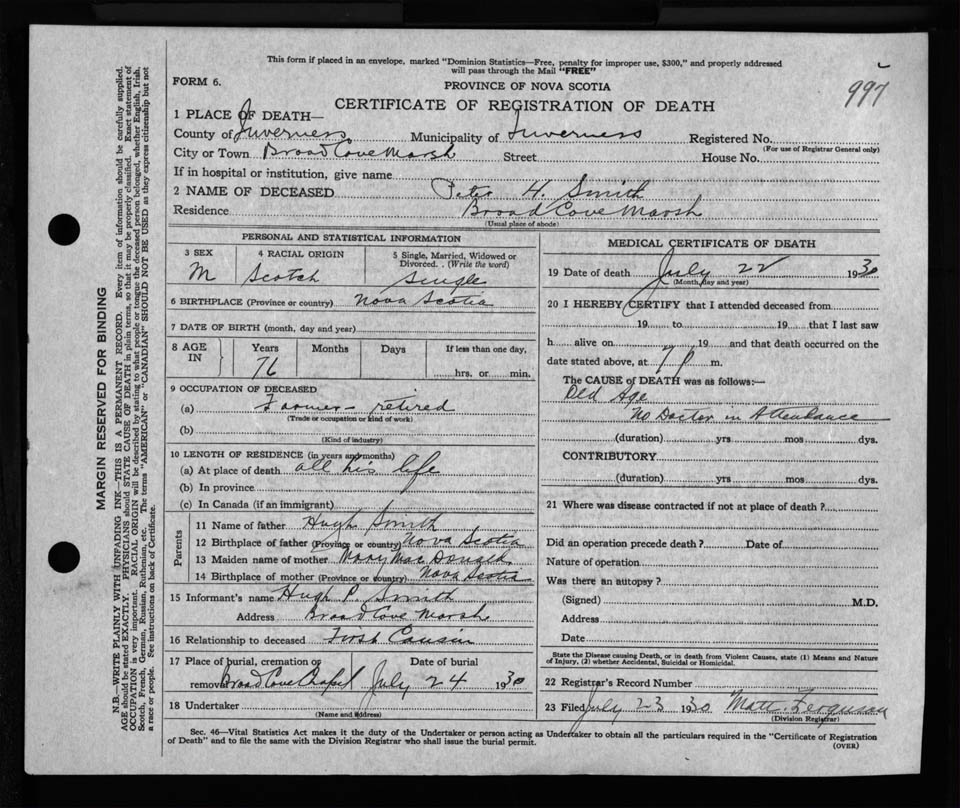 This form if placed in an envelope, marked "Dominion Statistics—Free, penalty for improper use, $300," and properly addressed
will pass through the Mail "FREE"
997
FORM 6.
PROVINCE OF NOVA SCOTIA
CERTIFICATE OF REGISTRATION OF DEATH
1 PLACE OF DEATH—
County of Inverness Municipality of Inverness Registered No.
(For use of Registrar General only)
City or Town Broad Cove Marsh Street House No.
If in hospital or institution, give name
2 NAME OF DECEASED Peter H. Smith
Residence Broad Cove Marsh
(Usual place of abode)
PERSONAL AND STATISTICAL INFORMATION
3 SEX 4 RACIAL ORIGIN 5 Single, Married, Widowed or
Divorced. . (Write the word)
M Scotch Single
6 BIRTHPLACE (Province or country) Nova Scotia
7 DATE OF BIRTH (month, day and year)
8 AGE IN Years Months Days If less than one day,
76 hrs. or min.
9 OCCUPATION OF DECEASED
(a) Farmer - retired
(Trade or occupation or kind of work)
(b)
(Kind of industry)
10 LENGTH OF RESIDENCE (in years and months)
(a) At place of death all his life
(b) In province
(c) In Canada (if an immigrant)
Parents
11 Name of father Hugh Smith
12 Birthplace of father (Province or country) Nova Scotia
13 Maiden name of mother Mary MacDonald
14 Birthplace of mother (Province or country) Nova Scotia
15 Informant's name Hugh P. Smith
Address Broad Cove Marsh
16 Relationship to deceased First Cousin
17 Place of burial, cremation or Date of burial
removal Broad Cove Chapel July 24 1930
18 Undertaker
(Name and address)
MEDICAL CERTIFICATE OF DEATH
19 Date of death July 22 1930
(Month, day and year)
20 I HEREBY CERTIFY that I attended deceased from
19 to 19 that I last saw
h alive on 19 and that death occurred on the
date stated above, at 7 p m.
The CAUSE of DEATH was as follows:—
Old Age
No Doctor in Attendance
(duration) yrs mos dys.
CONTRIBUTORY
(duration) yrs mos dys.
21 Where was disease contracted if not at place of death?
Did an operation precede death? Date of
Nature of operation
Was there an autopsy?
(Signed) M.D.
Address
Date
State the Disease causing Death, or in death from Violent Causes, state (1) Means and Nature
of Injury, (2) whether Accidental, Suicidal or Homicidal.
22 Registrar's Record Number
23 Filed July 23 1930 Matt. Ferguson
(Division Registrar)
Sec. 46—Vital Statistics Act makes it the duty of the Undertaker or person acting as Undertaker to obtain all the particulars required in the "Certificate of Registration
of Death" and to file the same with the Division Registrar who shall issue the burial permit.
(OVER)
MARGIN RESERVED FOR BINDING
N.B.—WRITE PLAINLY WITH UNFADING INK—THIS IS A PERMANENT RECORD. Every item of information should be carefully supplied.
AGE should be stated EXACTLY. PHYSICIANS should STATE CAUSE OF DEATH in plain terms, so that it may be properly classified. Exact statement of
OCCUPATION is very important. RACIAL ORIGIN will be described by stating to what people or tongue the deceased person belonged, whether English, Irish,
Scotch, French, German, Russian, Ruthenian, etc. The terms "AMERICAN" or "CANADIAN" SHOULD NOT BE USED as they express citizenship but not
a race or people. See instructions on back of Certificate.